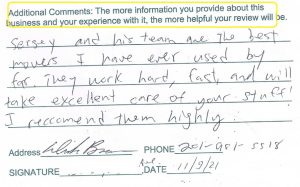 Additional Comments: The more information you provide about this
business and your experience with it, the more helpful your review will be.
and his team are the best
movers I have ever used by
far. They work hard, fast, and will
take excellent care of your stuff!
I reccomend them highly.
Address PHONE 201-981-5518
SIGNATURE DATE 11/9/21